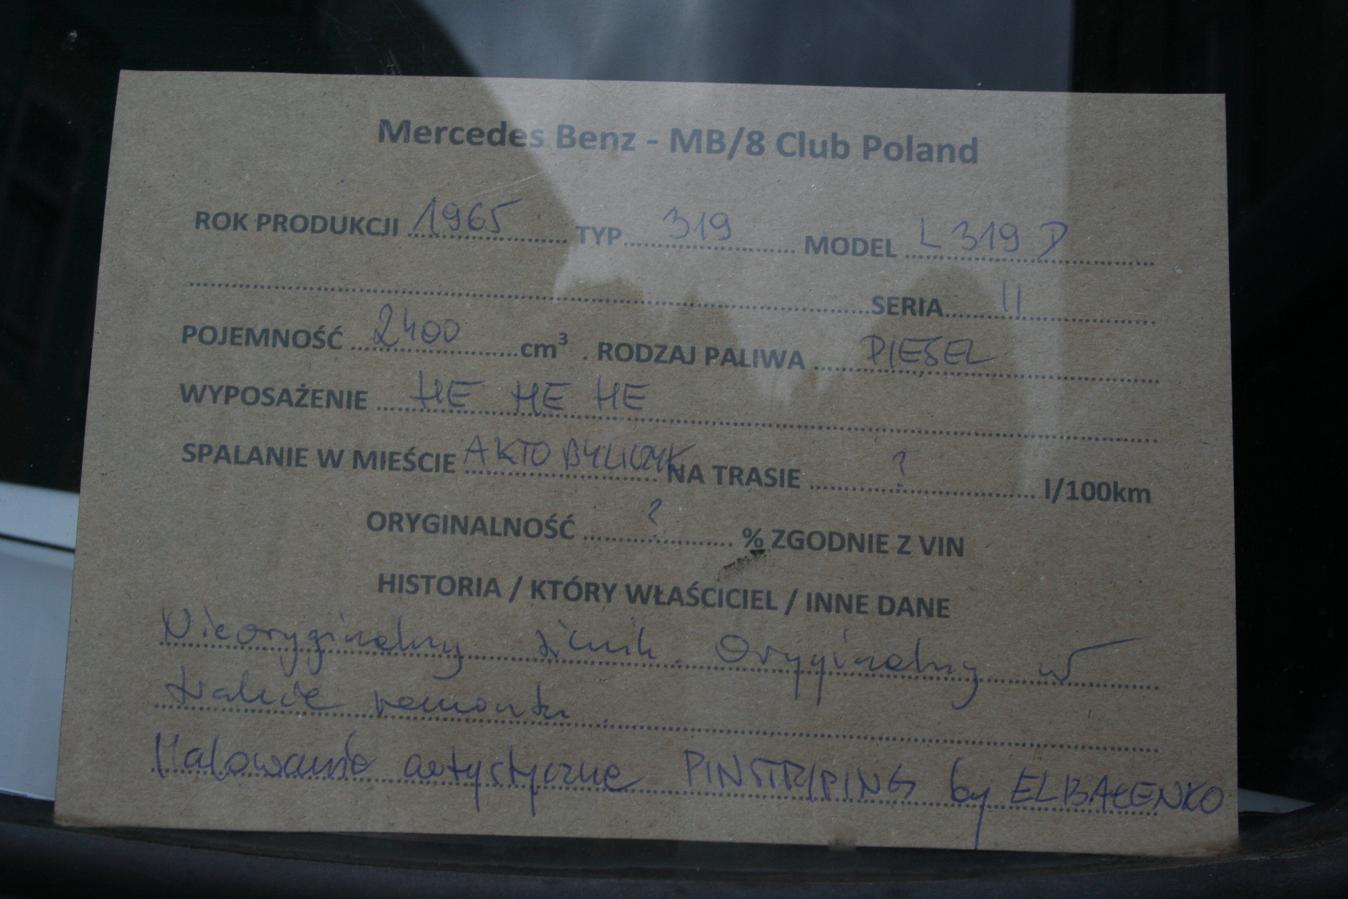 Mercedes Benz - MB/8 Club Poland
ROK PRODUKCJI 1965 TYP 319 MODEL L 319 D
SERIA II
POJEMNOŚĆ 2400 cm³. RODZAJ PALIWA DIESEL
WYPOSAŻENIE HE HE HE
SPALANIE W MIEŚCIE A KTO BY LICZYŁ NA TRASIE ? l/100km
ORYGINALNOŚĆ ? % ZGODNIE Z VIN
HISTORIA / KTÓRY WŁAŚCICIEL / INNE DANE
Nieoryginalny silnik. Oryginalny w
trakcie remontu.
Malowanie artystyczne PINSTRIPING by ELBAŁENKO